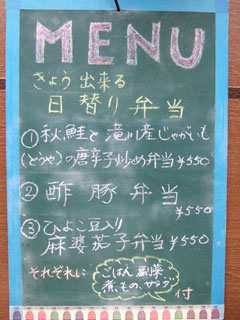 MENU
きょう出来る
日替り弁当
①秋鮭と滝川産じゃがいも
(とうや)の唐辛子炒め弁当¥550
②酢豚弁当
¥550
③ひよこ豆入り
麻婆茄子弁当¥550
それぞれに
ごはん、副菜、
煮もの、サラダ
付